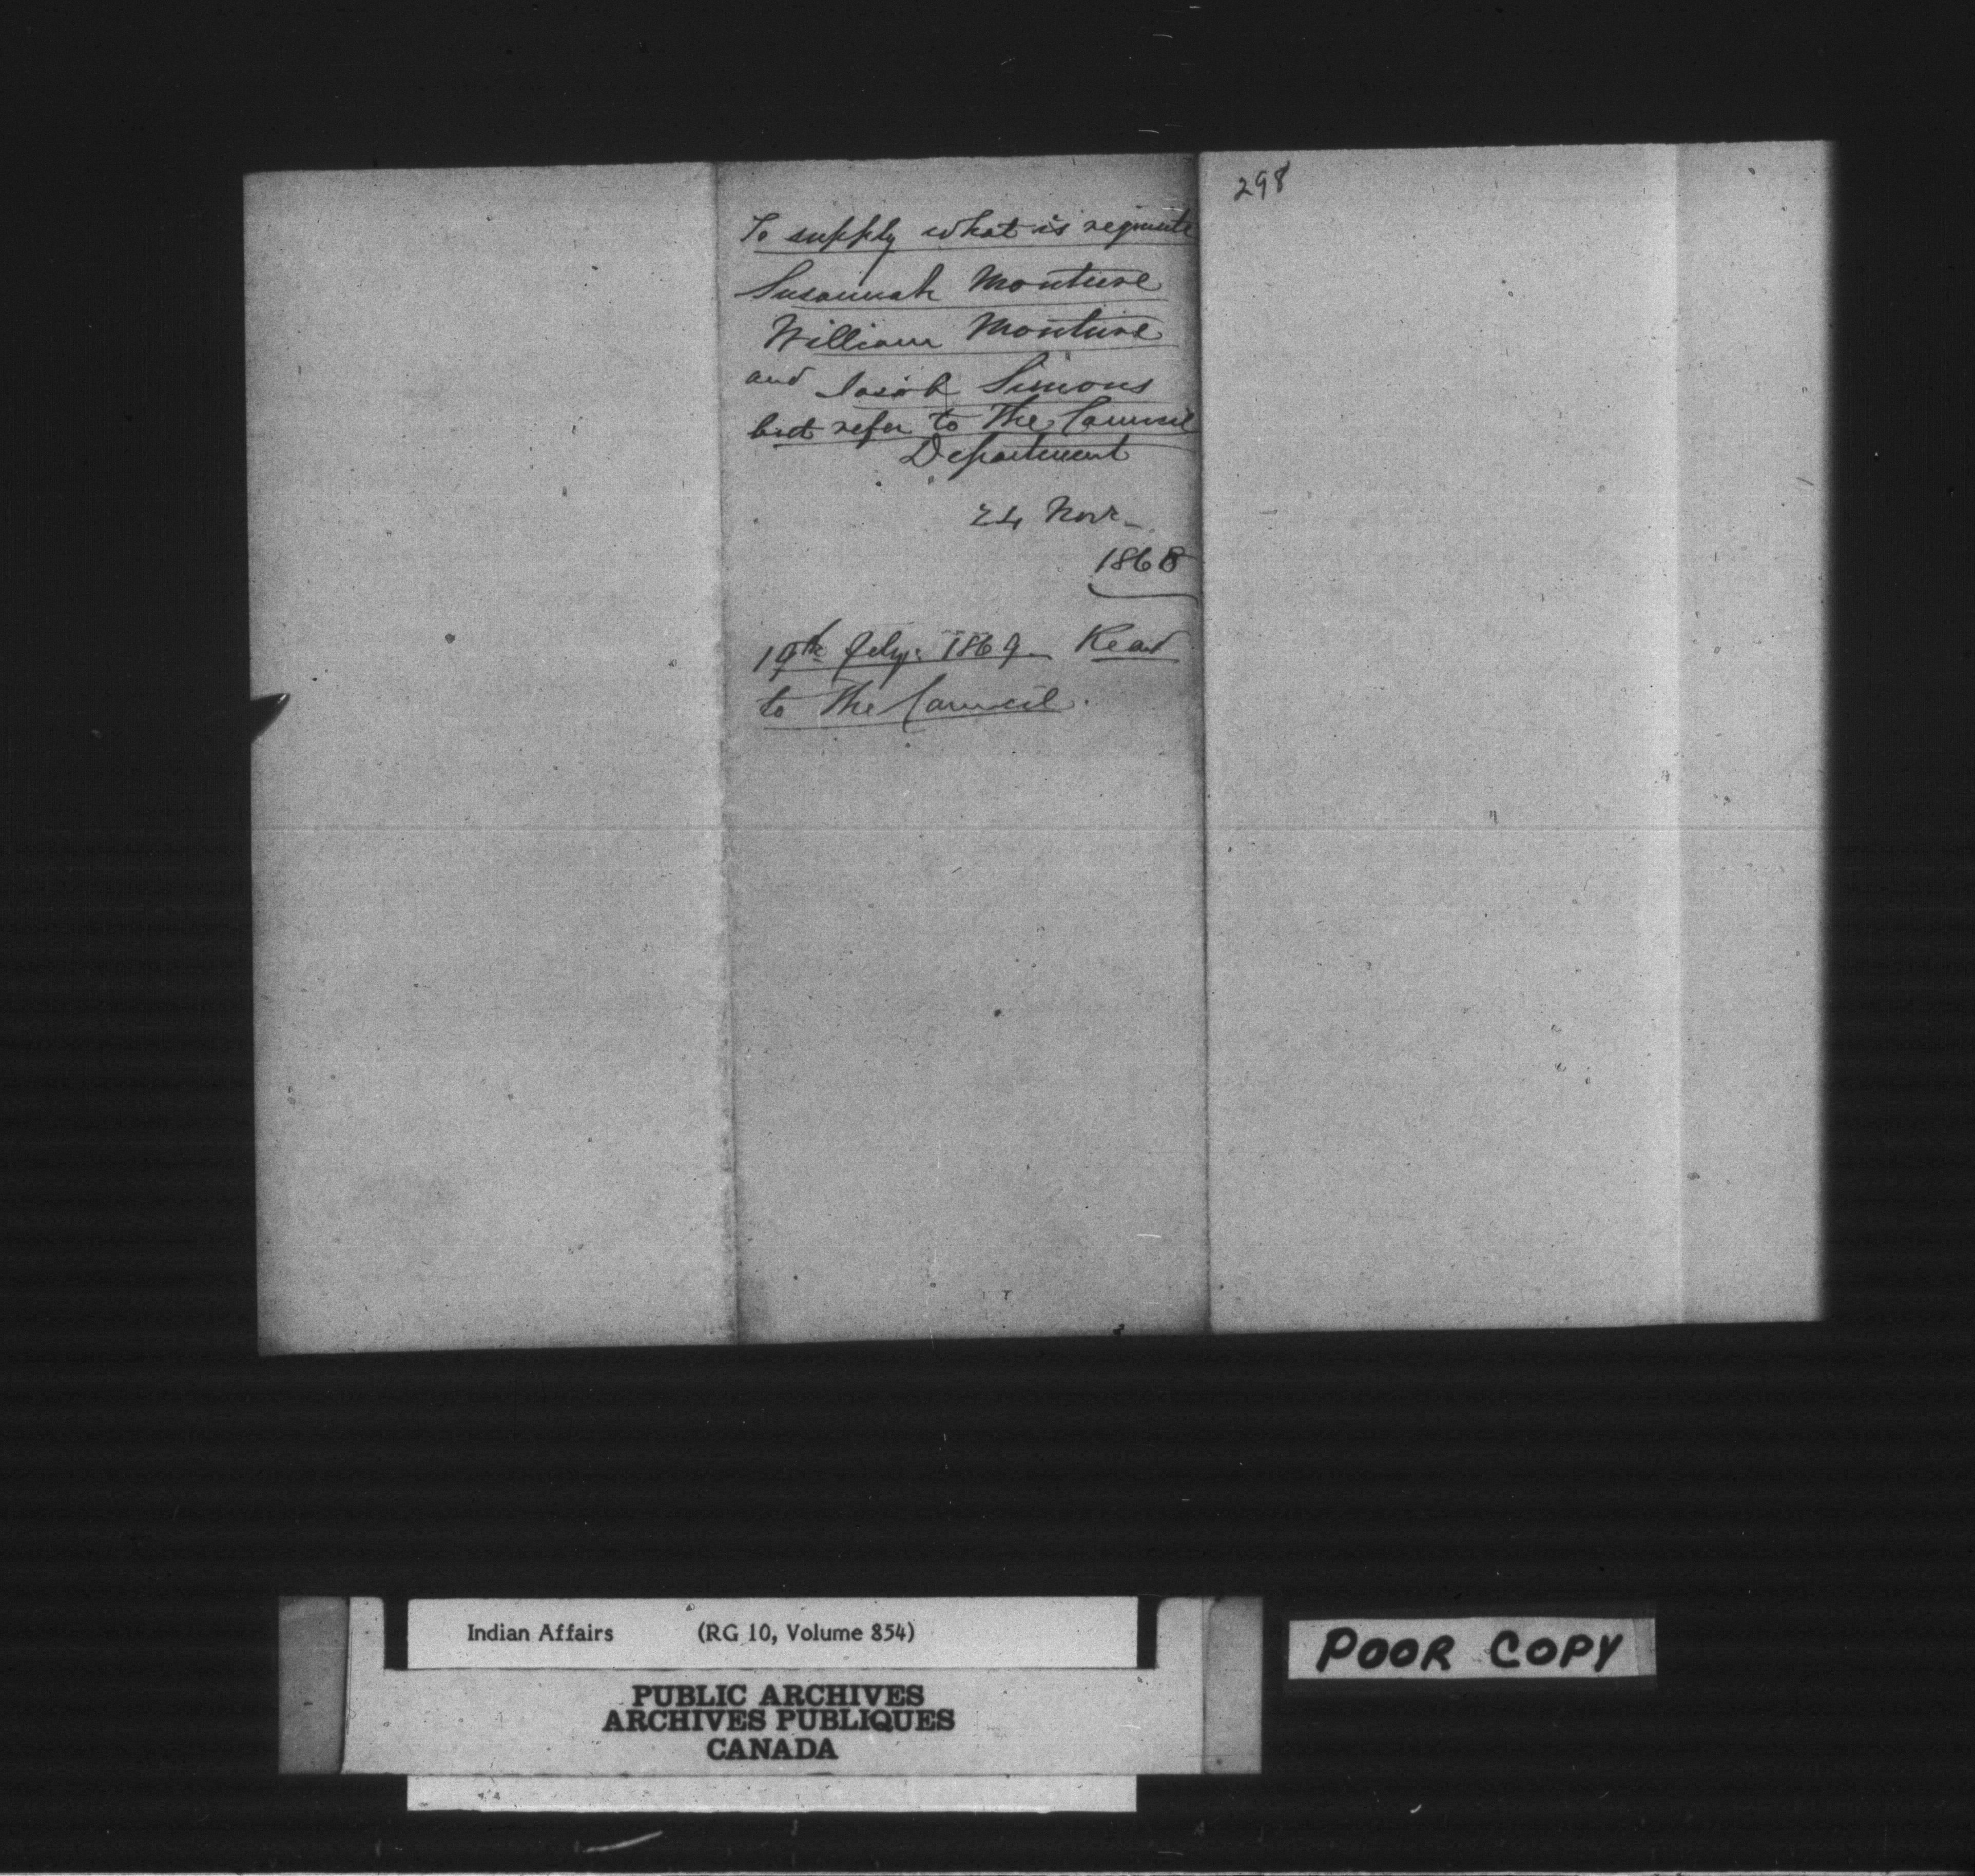 298
To supply what is requisite
Susannah Monture
William Monture
and Jacob Simons
but refer to The Council
Department
24 Novr.
1868
19th July: 1869 Read
to The Council.
Indian Affairs (RG 10, Volume 854)
PUBLIC ARCHIVES
ARCHIVES PUBLIQUES
CANADA
POOR COPY